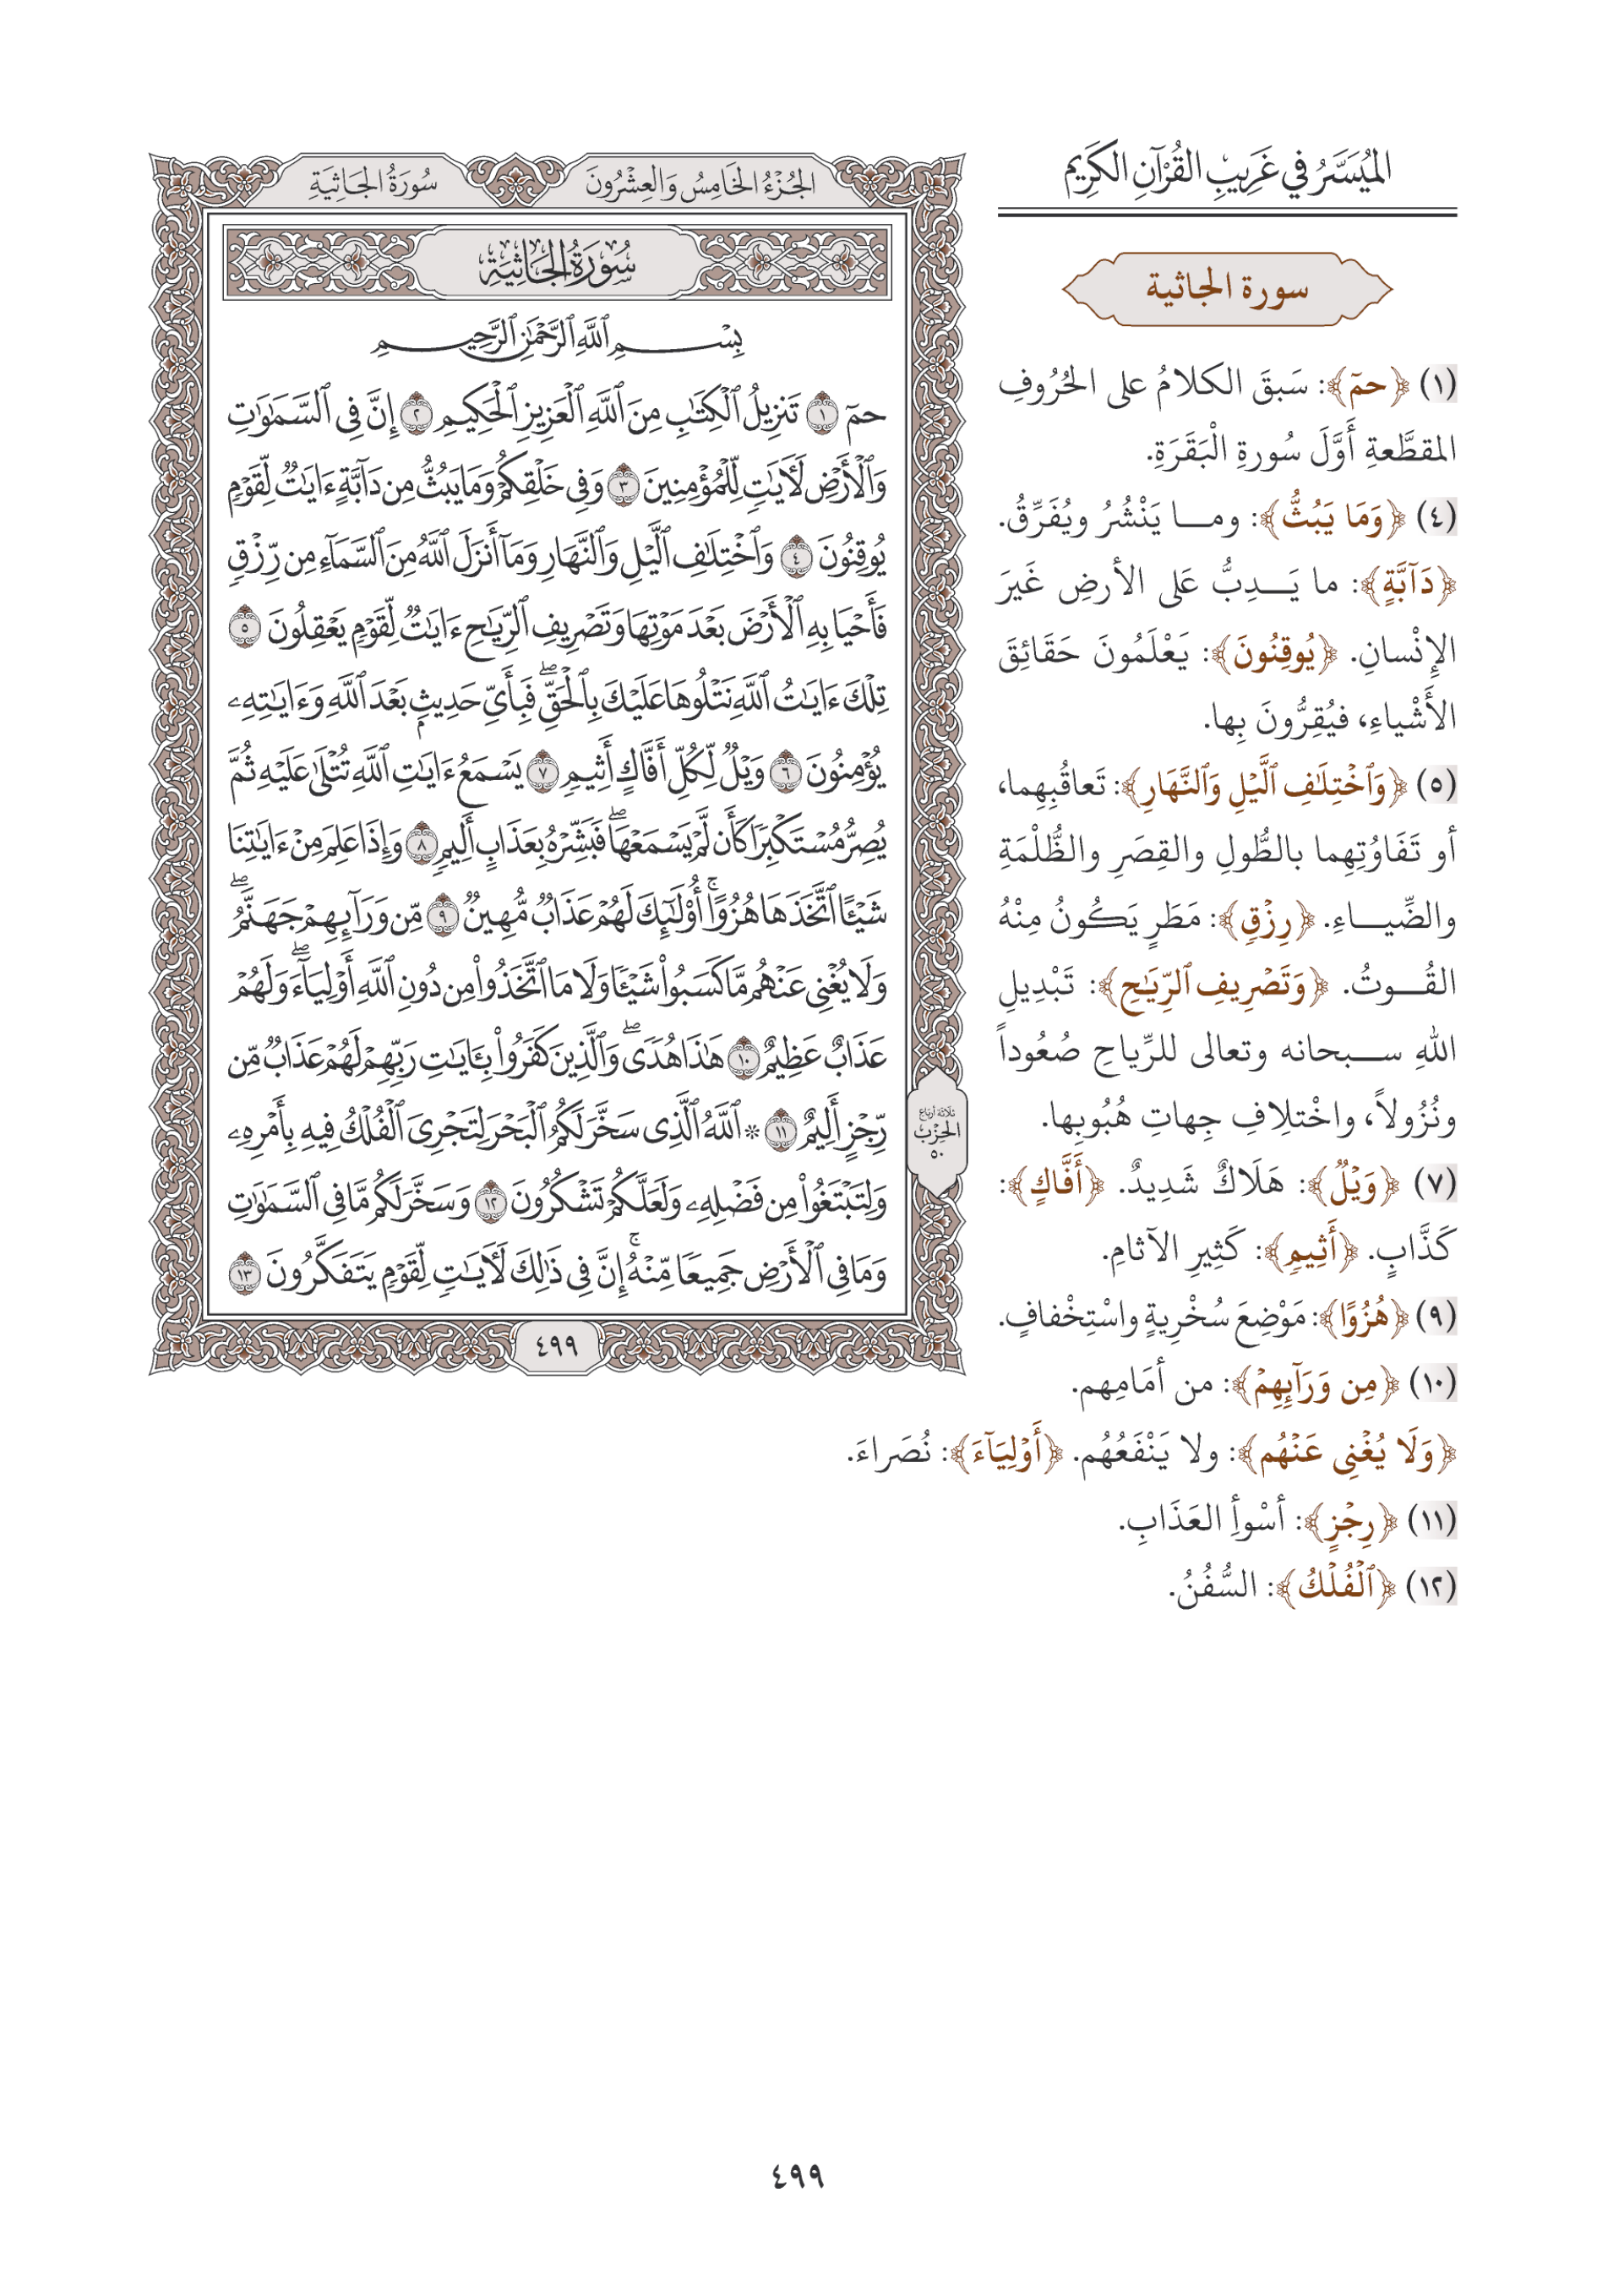 الميُسَّرُ في غَرِيبِ القُرْآنِ الكَرِيم
سورة الجاثية
(١) ﴿حمٓ﴾: سَبقَ الكلامُ على الحُرُوفِ
المقطَّعةِ أَوَّلَ سُورةِ الْبَقَرَةِ.
(٤) ﴿وَمَا يَبُثُّ﴾: ومـا يَنْشُرُ ويُفَرِّقُ.
﴿دَآبَّةٍ﴾: ما يَـدِبُّ عَلى الأرضِ غَيرَ
الإِنْسانِ. ﴿يُوقِنُونَ﴾: يَعْلَمُونَ حَقَائِقَ
الأَشْياءِ، فيُقِرُّونَ بِها.
(٥) ﴿وَٱخْتِلَٰفِ ٱلَّيْلِ وَٱلنَّهَارِ﴾: تَعاقُبِهِما،
أو تَفَاوُتِهِما بالطُّولِ والقِصَرِ والظُّلْمَةِ
والضِّيـاءِ. ﴿رِزْقٍ﴾: مَطَرٍ يَكُونُ مِنْهُ
القُـوتُ. ﴿وَتَصْرِيفِ ٱلرِّيَٰحِ﴾: تَبْدِيلِ
اللهِ سـبحانه وتعالى للرِّياحِ صُعُوداً
ونُزُولاً، واخْتلِافِ جِهاتِ هُبُوبِها.
(٧) ﴿وَيْلٌ﴾: هَلَاكٌ شَدِيدٌ. ﴿أَفَّاكٍ﴾:
كَذَّابٍ. ﴿أَثِيمٍ﴾: كَثِيرِ الآثامِ.
(٩) ﴿هُزُوًا﴾: مَوْضِعَ سُخْرِيةٍ واسْتِخْفافٍ.
(١٠) ﴿مِن وَرَآئِهِمْ﴾: من أمَامِهم.
﴿وَلَا يُغْنِي عَنْهُم﴾: ولا يَنْفَعُهُم. ﴿أَوْلِيَآءَ﴾: نُصَراءَ.
(١١) ﴿رِجْزٍ﴾: أسْوأِ العَذَابِ.
(١٢) ﴿ٱلْفُلْكُ﴾: السُّفُنُ.
الجُزْءُ الخَامِسُ وَالعِشْرُونَ
سُورَةُ الجَاثِيَةِ
سُورَةُ الجَاثِيَةِ
بِسْمِ ٱللَّهِ ٱلرَّحْمَٰنِ ٱلرَّحِيمِ
حمٓ ١ تَنزِيلُ ٱلْكِتَٰبِ مِنَ ٱللَّهِ ٱلْعَزِيزِ ٱلْحَكِيمِ ٢ إِنَّ فِي ٱلسَّمَٰوَٰتِ
وَٱلْأَرْضِ لَأٓيَٰتٍ لِّلْمُؤْمِنِينَ ٣ وَفِي خَلْقِكُمْ وَمَا يَبُثُّ مِن دَآبَّةٍ ءَايَٰتٌ لِّقَوْمٍ
يُوقِنُونَ ٤ وَٱخْتِلَٰفِ ٱلَّيْلِ وَٱلنَّهَارِ وَمَآ أَنزَلَ ٱللَّهُ مِنَ ٱلسَّمَآءِ مِن رِّزْقٍ
فَأَحْيَا بِهِ ٱلْأَرْضَ بَعْدَ مَوْتِهَا وَتَصْرِيفِ ٱلرِّيَٰحِ ءَايَٰتٌ لِّقَوْمٍ يَعْقِلُونَ ٥
تِلْكَ ءَايَٰتُ ٱللَّهِ نَتْلُوهَا عَلَيْكَ بِٱلْحَقِّۖ فَبِأَيِّ حَدِيثٍۭ بَعْدَ ٱللَّهِ وَءَايَٰتِهِۦ
يُؤْمِنُونَ ٦ وَيْلٌ لِّكُلِّ أَفَّاكٍ أَثِيمٍ ٧ يَسْمَعُ ءَايَٰتِ ٱللَّهِ تُتْلَىٰ عَلَيْهِ ثُمَّ
يُصِرُّ مُسْتَكْبِرًا كَأَن لَّمْ يَسْمَعْهَاۖ فَبَشِّرْهُ بِعَذَابٍ أَلِيمٍ ٨ وَإِذَا عَلِمَ مِنْ ءَايَٰتِنَا
شَيْـًٔا ٱتَّخَذَهَا هُزُوًاۚ أُو۟لَٰٓئِكَ لَهُمْ عَذَابٌ مُّهِينٌ ٩ مِّن وَرَآئِهِمْ جَهَنَّمُۖ
وَلَا يُغْنِي عَنْهُم مَّا كَسَبُوا۟ شَيْـًٔا وَلَا مَا ٱتَّخَذُوا۟ مِن دُونِ ٱللَّهِ أَوْلِيَآءَۖ وَلَهُمْ
عَذَابٌ عَظِيمٌ ١٠ هَٰذَا هُدًىۖ وَٱلَّذِينَ كَفَرُوا۟ بِـَٔايَٰتِ رَبِّهِمْ لَهُمْ عَذَابٌ مِّن
رِّجْزٍ أَلِيمٌ ١١ ۞ ٱللَّهُ ٱلَّذِي سَخَّرَ لَكُمُ ٱلْبَحْرَ لِتَجْرِيَ ٱلْفُلْكُ فِيهِ بِأَمْرِهِۦ
وَلِتَبْتَغُوا۟ مِن فَضْلِهِۦ وَلَعَلَّكُمْ تَشْكُرُونَ ١٢ وَسَخَّرَ لَكُم مَّا فِي ٱلسَّمَٰوَٰتِ
وَمَا فِي ٱلْأَرْضِ جَمِيعًا مِّنْهُۚ إِنَّ فِي ذَٰلِكَ لَأٓيَٰتٍ لِّقَوْمٍ يَتَفَكَّرُونَ ١٣
ثلاثة أرباع
الحِزْب
٥٠
٤٩٩
٤٩٩